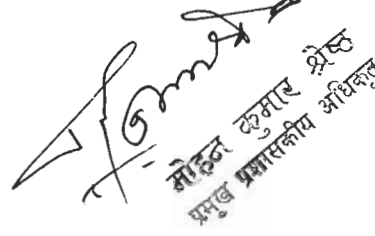 मोहन कुमार श्रेष्ठ
प्रमुख प्रशासकीय अधिकृत